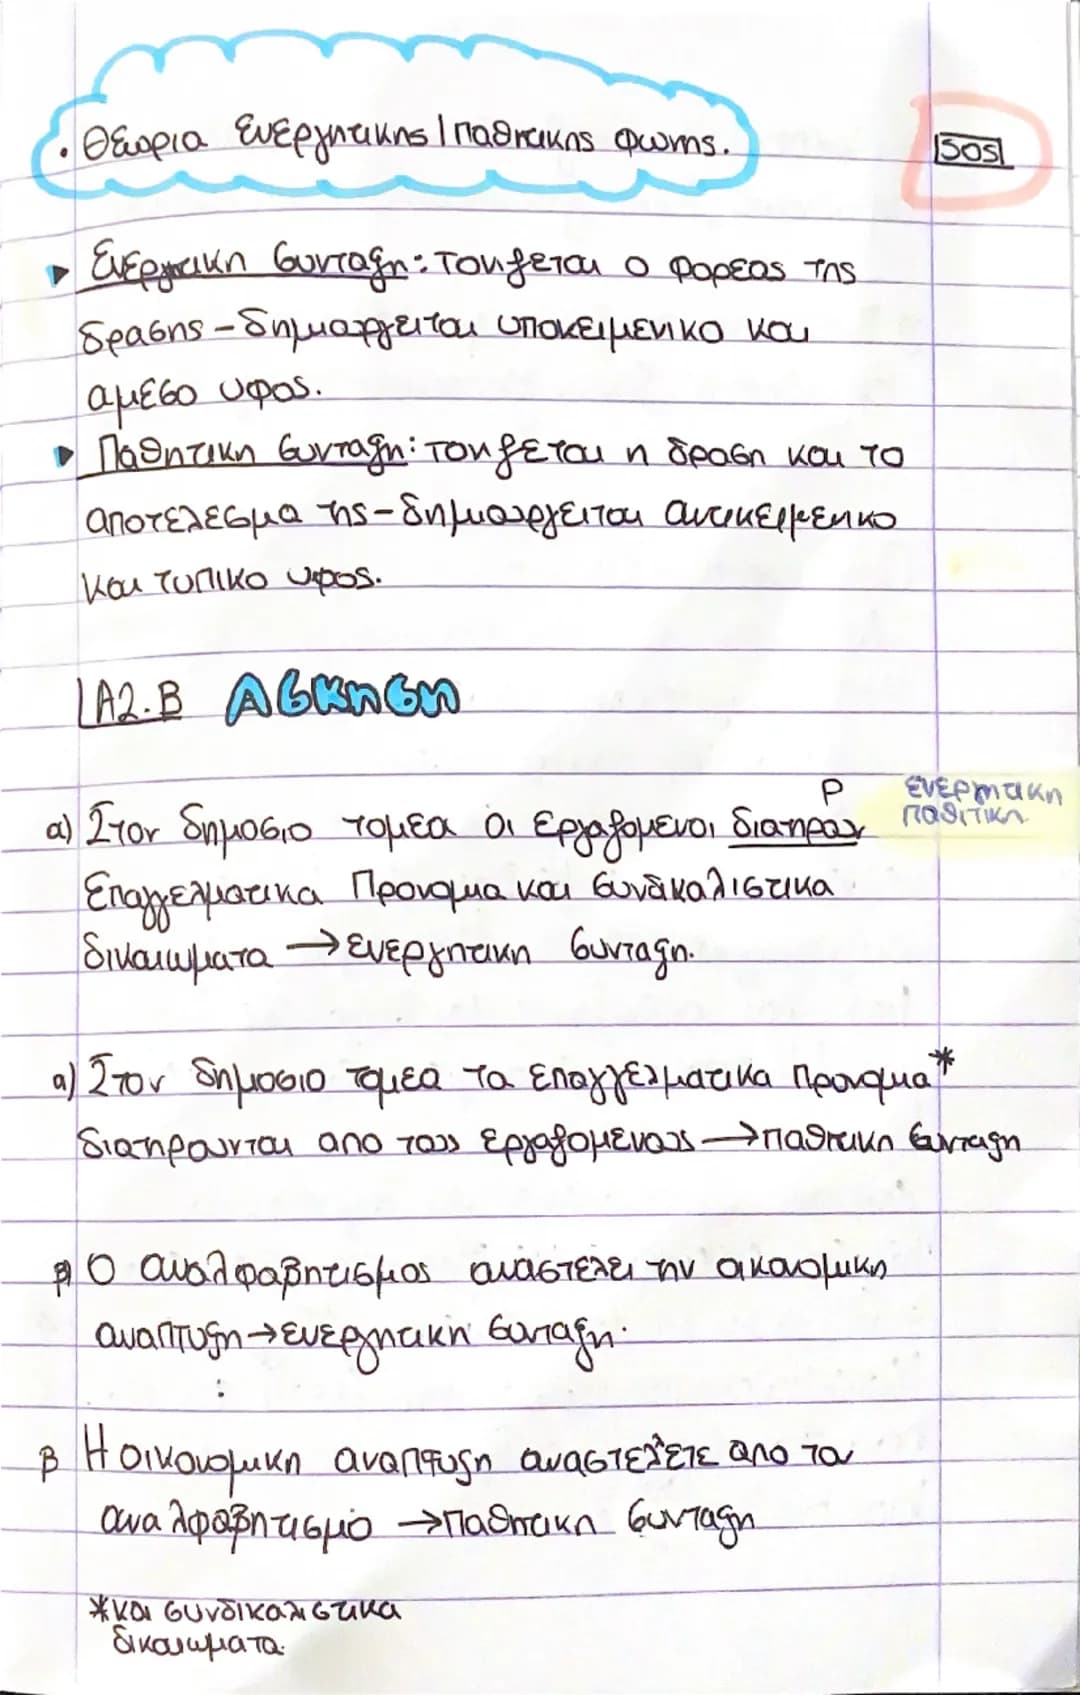 • Θεωρια Ενεργητικης | Παθητικης Φωνης.
SOS
Ενεργητικη συνταξη: Τονιζεται ο φορεας της
δρασης - δημιουργειται υποκειμενικο και
αμεσο υφος.
Παθητικη συνταξη: τονιζεται η δραση και το
αποτελεσμα της - δημιουργειται αντικειμενικο
και τυπικο υφος.
A2.B Ασκηση
Ρ
ενεργητικη
παθιτικη
α) Στον δημοσιο τομεα οι εργαζομενοι διατηρουν
επαγγελματικα προνομια και συνδικαλιστικα
δικαιωματα → ενεργητικη συνταξη.
α) Στον δημοσιο τομεα τα επαγγελματικα προνομια*
διατηρουνται απο τους εργαζομενους → παθητικη συνταξη
β) Ο αναλφαβητισμος αναστελει την οικονομικη
αναπτυξη → ενεργητικη συνταξη.
β Η οικονομικη αναπτυξη αναστελετε απο τον
αναλφαβητισμο → Παθητικη συνταξη
*και συνδικαλιστικα
δικαιωματα.